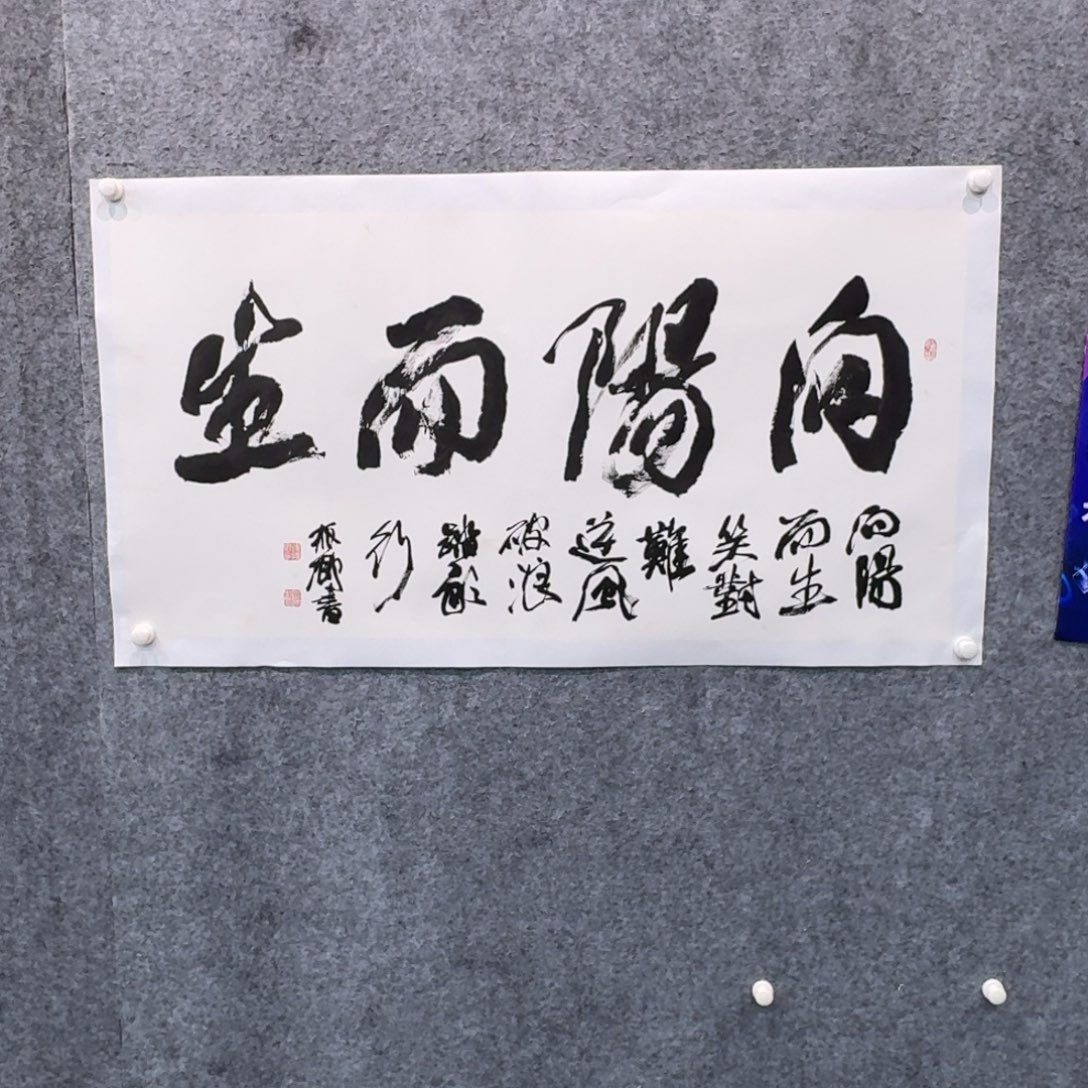 向陽而生
向陽
而生
笑對
難
逆風
破浪
踏歌
行
振卿書